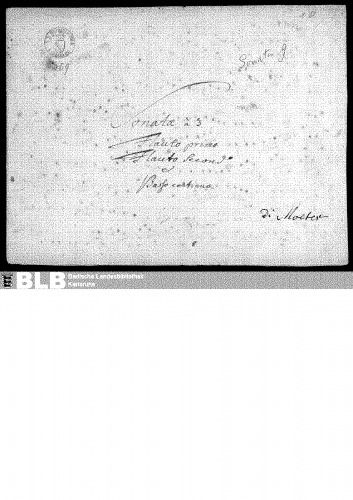 Sonata 9
Sonata 23
Flauto primo
Flauto Secondo
e
Basso continuo
di Molter
BLB
Badische Landesbibliothek
Karlsruhe